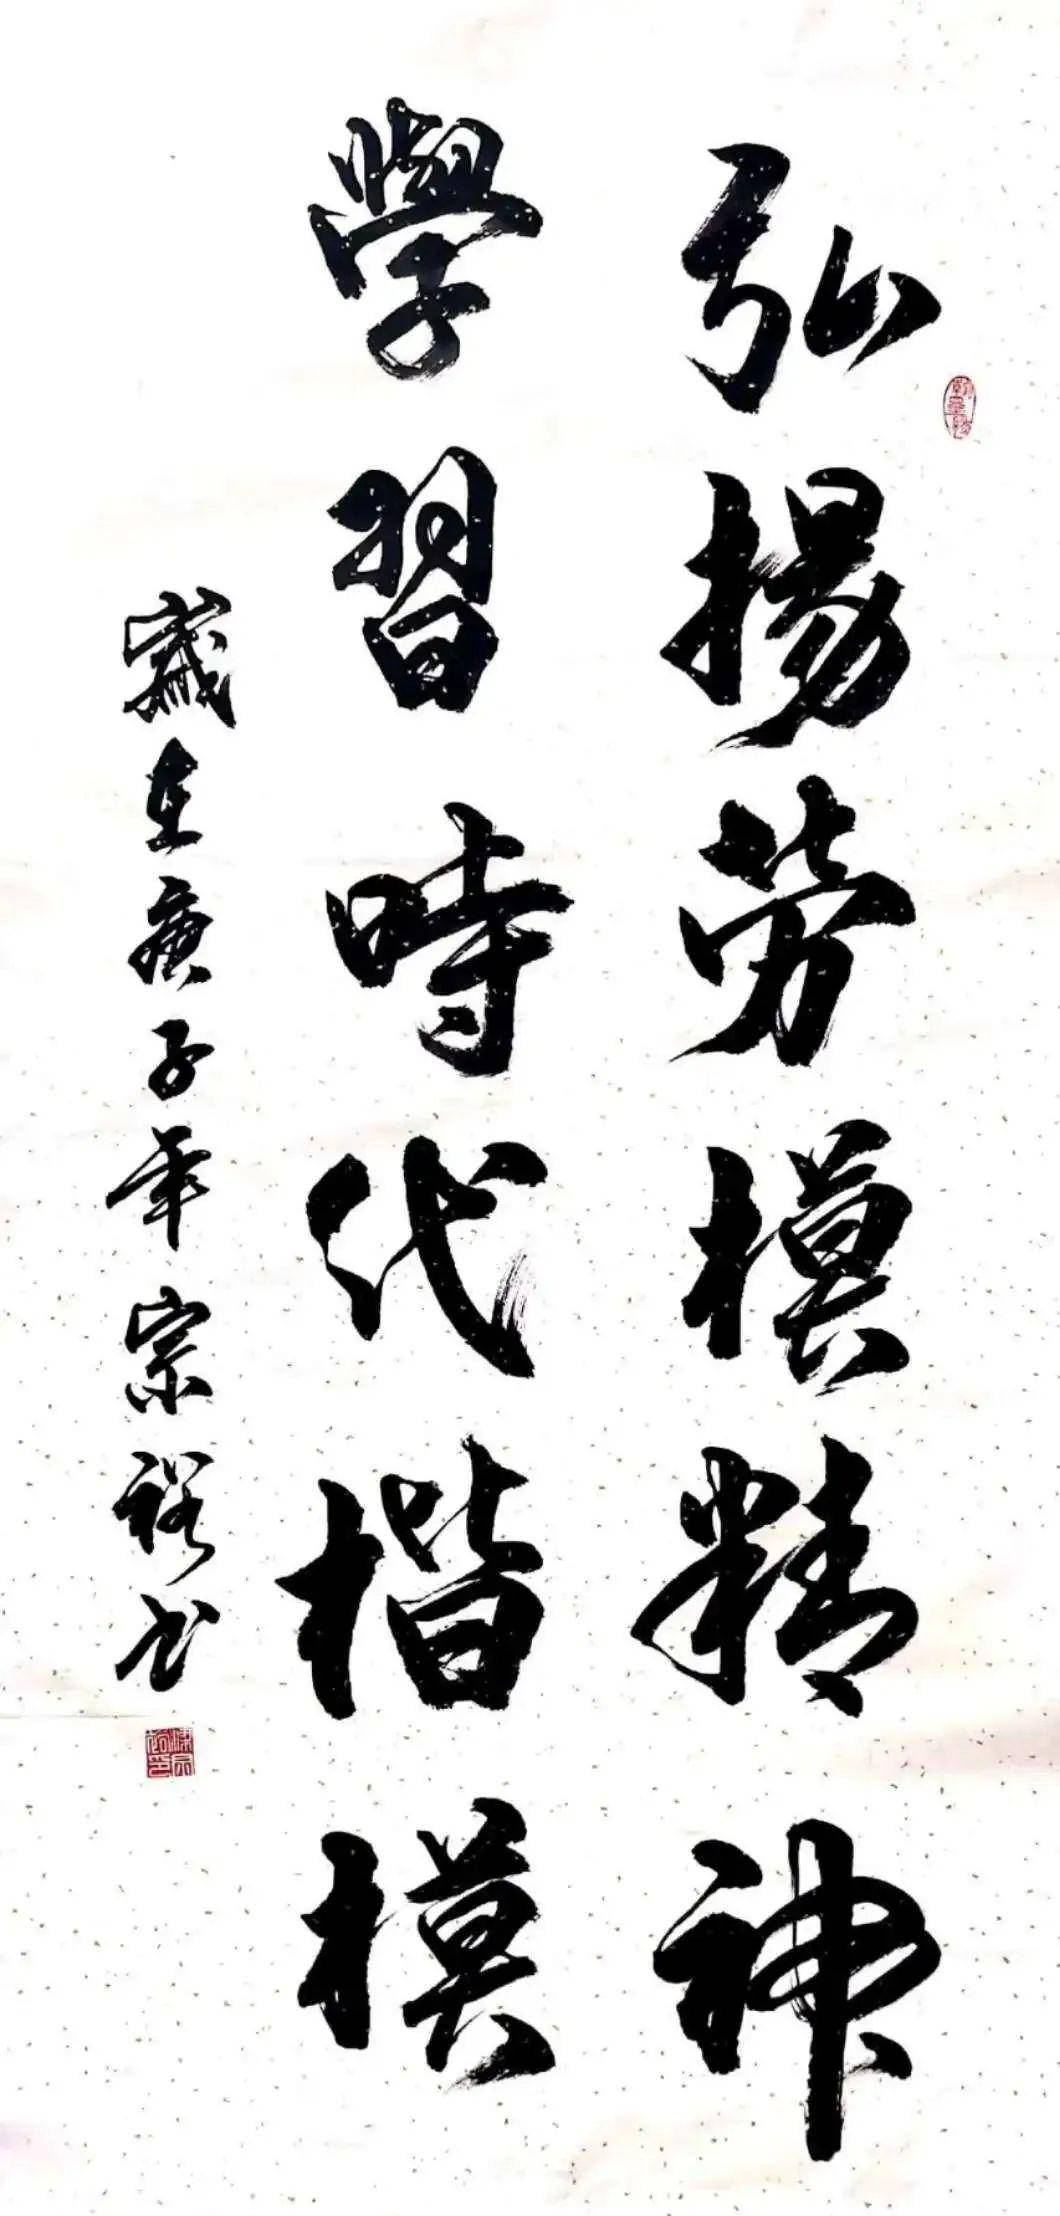 弘揚劳模精神
學習時代楷模
歲在庚子年宗裕书